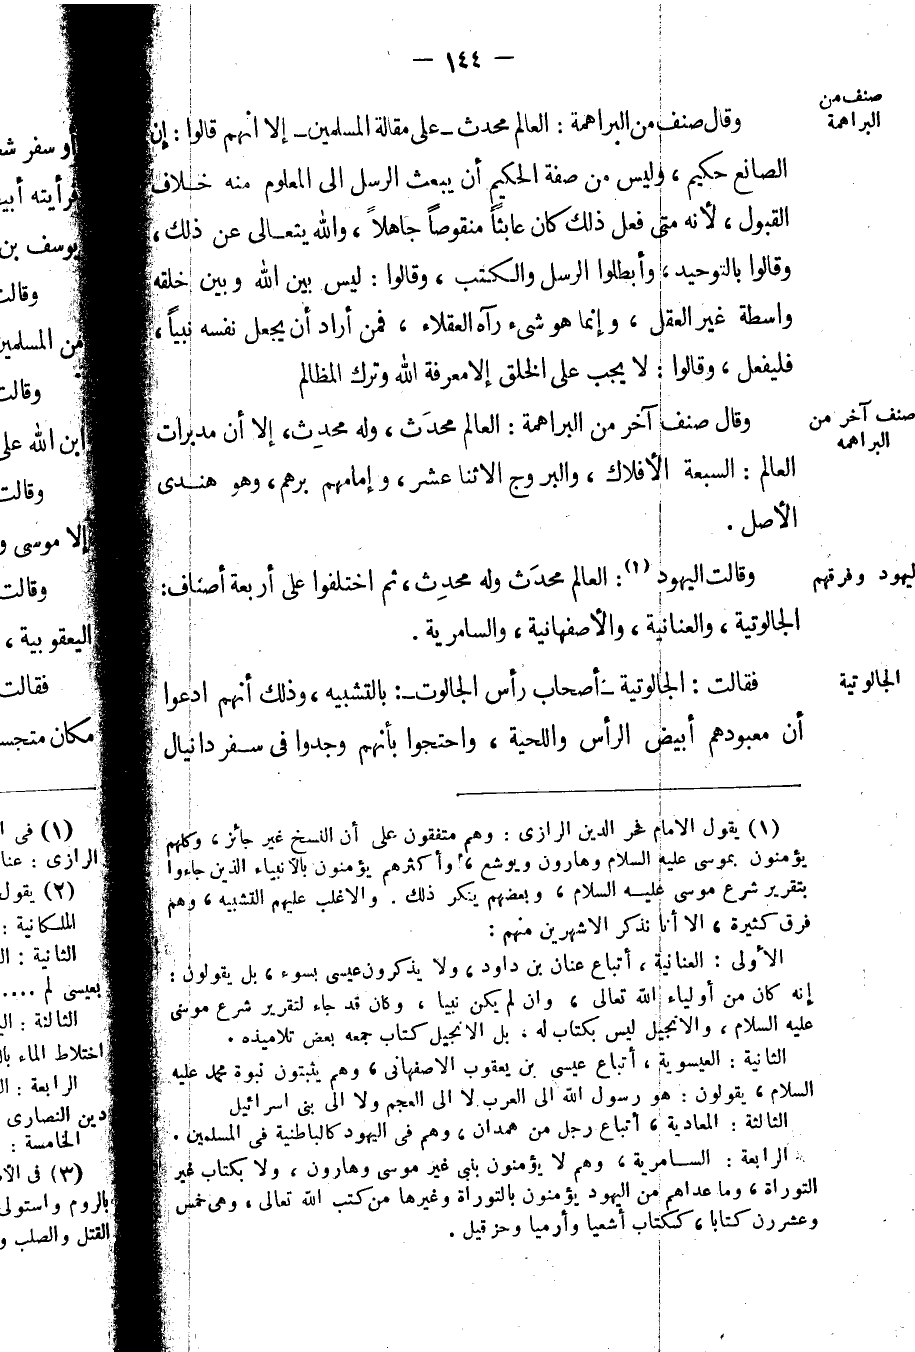 — ١٤٤ —
صنف من
البراهمة
وقال صنف من البراهمة : العالم محدث ـ على مقالة المسلمين ـ إلا أنهم قالوا : إن
الصانع حكيم ، وليس من صفة الحكيم أن يبعث الرسل الى المعلوم منه خلاف
القبول ، لأنه متى فعل ذلك كان عابثاً منقوصاً جاهلاً ، والله يتعالى عن ذلك ،
وقالوا بالتوحيد ، وأبطلوا الرسل والكتب ، وقالوا : ليس بين الله وبين خلقه
واسطة غير العقل ، وإنما هو شىء رآه العقلاء ، فمن أراد أن يجعل نفسه نبياً ،
فليفعل ، وقالوا : لا يجب على الخلق إلا معرفة الله وترك المظالم
صنف آخر من
البراهمه
وقال صنف آخر من البراهمة : العالم محدَث ، وله محدِث ، إلا أن مدبرات
العالم : السبعة الأفلاك ، والبروج الاثنا عشر ، وإمامهم برهم ، وهو هندى
الأصل .
ليهود وفرقهم
وقالت اليهود (١) : العالم محدَث وله محدِث ، ثم اختلفوا على أربعة أصناف :
الجالوتية ، والعنانية ، والأصفهانية ، والسامرية .
الجالوتية
فقالت : الجالوتية ـ أصحاب رأس الجالوت ـ : بالتشبيه ، وذلك أنهم ادعوا
أن معبودهم أبيض الرأس واللحية ، واحتجوا بأنهم وجدوا فى سفر دانيال
(١) يقول الامام فخر الدين الرازى : وهم متفقون على أن النسخ غير جائز ، وكلهم
يؤمنون بموسى عليه السلام وهارون ويوشع ، وأكثرهم يؤمنون بالانبياء الذين جاءوا
بتقرير شرع موسى عليه السلام ، وبعضهم ينكر ذلك . والاغلب عليهم التشبيه ، وهم
فرق كثيرة ، الا أنا نذكر الاشهرين منهم :
الأولى : العنانية ، أتباع عنان بن داود ، ولا يذكرون عيسى بسوء ، بل يقولون :
إنه كان من أولياء الله تعالى ، وان لم يكن نبيا ، وكان قد جاء لتقرير شرع موسى
عليه السلام ، والانجيل ليس بكتاب له . بل الانجيل كتاب جمعه بعض تلاميذه .
الثانية : العيسوية ، أتباع عيسى بن يعقوب الاصفهانى ، وهم يثبتون نبوة محمد عليه
السلام ، يقولون : هو رسول الله الى العرب لا الى العجم ولا الى بنى اسرائيل
الثالثة : المعادية ، أتباع رجل من همدان ، وهم فى اليهود كالباطنية فى المسلمين .
الرابعة : السامرية ، وهم لا يؤمنون بنبى غير موسى وهارون ، ولا بكتاب غير
التوراة ، وما عداهم من اليهود يؤمنون بالتوراة وغيرها من كتب الله تعالى ، وهى خمس
وعشرن كتابا ، ككتاب أشعيا وأرميا وحزقيل .
أو سفر
فرأيته
يوسف بن
وقالت
من
وقالت
ابن الله على
وقالت
إلا موسى و
وقالت
اليعقوبية ،
فقالت
مكان
(١) فى
الرازى :
(٢) يقول
الملكانية :
الثانية :
بعيسى لم ....
الثالثة :
اختلاط الماء
الرابعة :
دين النصارى
الخامسة :
(٣) فى
بالروم واستولى
القتل والصلب و